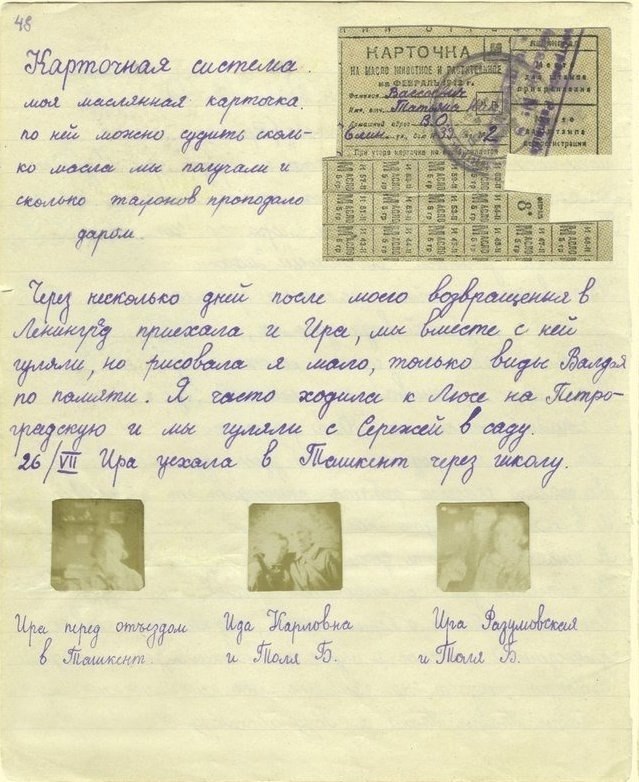 48
Карточная система.
моя маслянная карточка.
по ней можно судить сколь-
ко масла мы получали и
сколько талонов пропадало
даром.
КАРТОЧКА
НА МАСЛО ЖИВОТНОЕ И РАСТИТЕЛЬНОЕ
на ФЕВРАЛЬ 1942 г.
Фамилия Вассоевич
Татьяна
В.О.
6 лин. 39 2
При утере карточка не
Через несколько дней после моего возвращенья в
Ленинград приехала и Ира, мы вместе с ней
гуляли, но рисовала я мало, только виды Валдая
по памяти. Я часто ходила к Люсе на Петро-
градскую и мы гуляли с Сережей в саду.
26/VII Ира уехала в Ташкент через школу.
Ира перед отъездом
в Ташкент.
Ида Карловна
и Толя Б.
Ира Разумовская
и Толя Б.